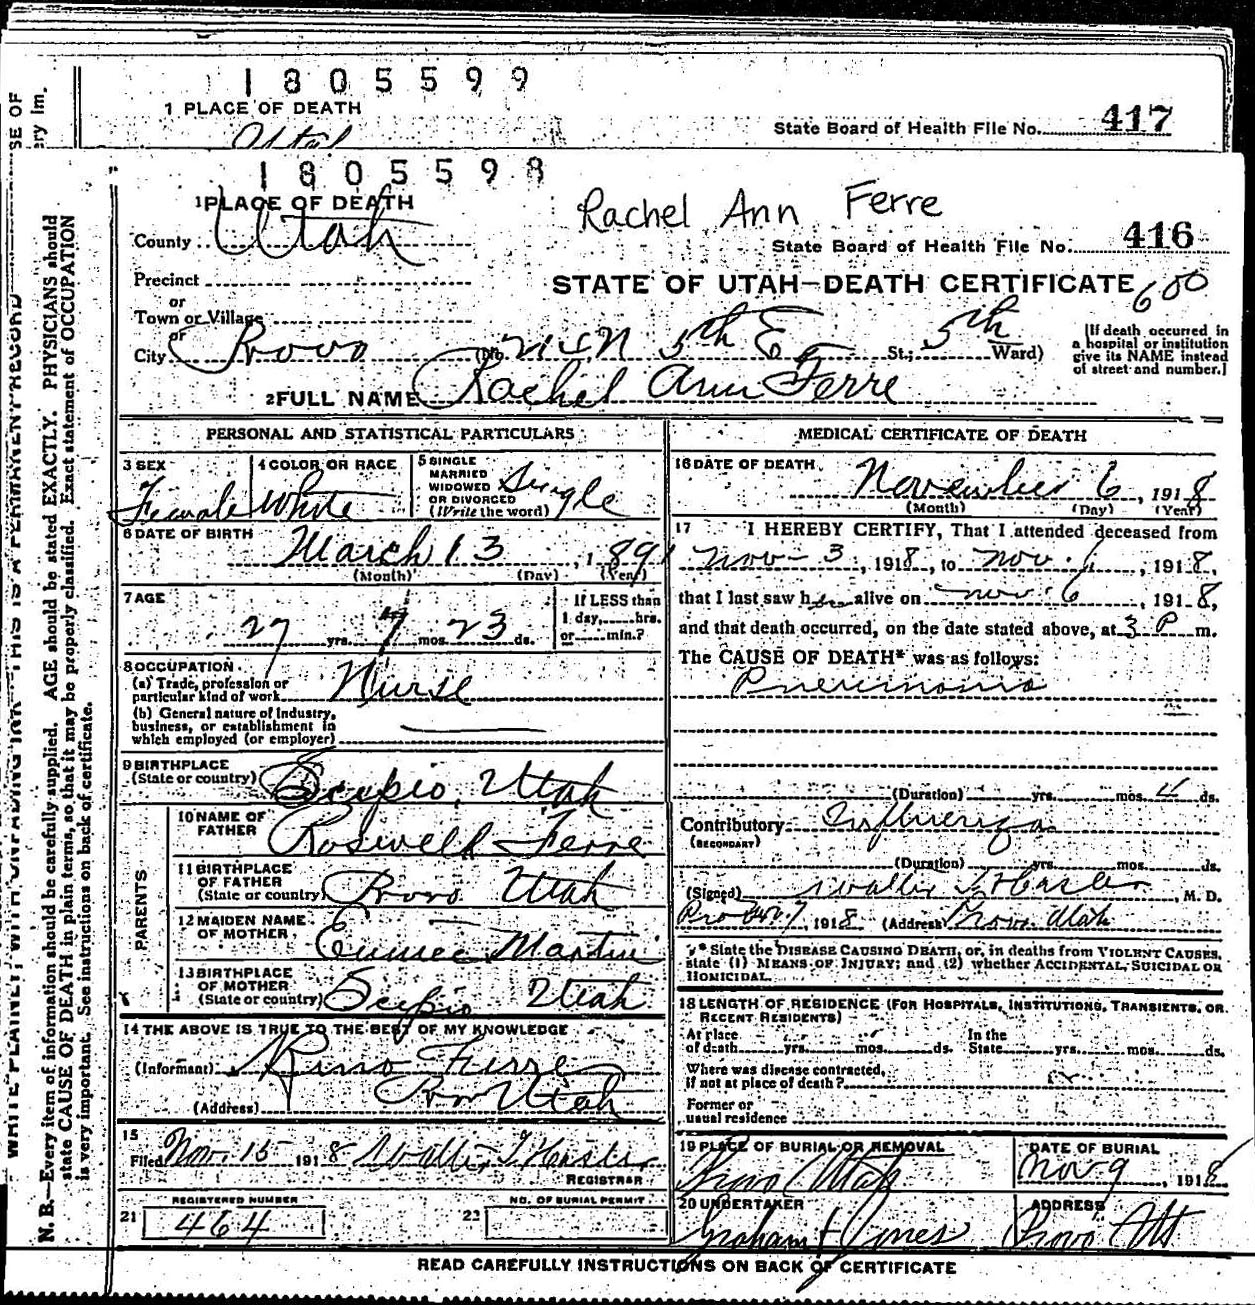 1805599
1 PLACE OF DEATH
State Board of Health File No. 417
Utah
1805598
1 PLACE OF DEATH
Rachel Ann Ferre
County Utah
State Board of Health File No. 416
Precinct
STATE OF UTAH—DEATH CERTIFICATE
600
or
Town or Village
or
City Provo (No. 5th E St.; 5th Ward)
[If death occurred in
a hospital or institution
give its NAME instead
of street and number.]
2 FULL NAME Rachel Ann Ferre
PERSONAL AND STATISTICAL PARTICULARS
3 SEX Female
4 COLOR OR RACE White
5 SINGLE
MARRIED
WIDOWED
OR DIVORCED
(Write the word) Single
6 DATE OF BIRTH
March 13, 1891
(Month) (Day) (Year)
7 AGE
27 yrs. 7 mos. 23 ds.
If LESS than
1 day, hrs.
or min.?
8 OCCUPATION
(a) Trade, profession or
particular kind of work Nurse
(b) General nature of Industry,
business, or establishment in
which employed (or employer)
9 BIRTHPLACE
(State or country) Scipio, Utah
PARENTS
10 NAME OF
FATHER Roswell Ferre
11 BIRTHPLACE
OF FATHER
(State or country) Provo Utah
12 MAIDEN NAME
OF MOTHER Eunice Martin
13 BIRTHPLACE
OF MOTHER
(State or country) Scipio Utah
14 THE ABOVE IS TRUE TO THE BEST OF MY KNOWLEDGE
(Informant) Ferre
(Address) Provo Utah
15
Filed Nov. 15 1918 Walter T Hasler
REGISTRAR
REGISTERED NUMBER
21 464
NO. OF BURIAL PERMIT
22
MEDICAL CERTIFICATE OF DEATH
16 DATE OF DEATH
November 6, 1918
(Month) (Day) (Year)
17 I HEREBY CERTIFY, That I attended deceased from
Nov - 3, 1918, to Nov. 6, 1918,
that I last saw her alive on Nov. 6, 1918,
and that death occurred, on the date stated above, at 3 P m.
The CAUSE OF DEATH* was as follows:
Pneumonia
(Duration) yrs. mos. 4 ds.
Contributory Influenza
(SECONDARY)
(Duration) yrs. mos. ds.
(Signed) Walter T Hasler, M. D.
Nov. 7, 1918 (Address) Provo Utah
* State the DISEASE CAUSING DEATH, or, in deaths from VIOLENT CAUSES,
state (1) MEANS OF INJURY; and (2) whether ACCIDENTAL, SUICIDAL OR
HOMICIDAL.
18 LENGTH OF RESIDENCE (FOR HOSPITALS, INSTITUTIONS, TRANSIENTS, OR
RECENT RESIDENTS)
At place
of death yrs. mos. ds.
In the
State yrs. mos. ds.
Where was disease contracted,
if not at place of death?
Former or
usual residence
19 PLACE OF BURIAL OR REMOVAL
Provo Utah
DATE OF BURIAL
Nov 9, 1918
20 UNDERTAKER
Graham & Jones
ADDRESS
Provo Ut
READ CAREFULLY INSTRUCTIONS ON BACK OF CERTIFICATE
WRITE PLAINLY, WITH UNFADING INK—THIS IS A PERMANENT RECORD
N. B.—Every item of information should be carefully supplied. AGE should be stated EXACTLY. PHYSICIANS should
state CAUSE OF DEATH in plain terms, so that it may be properly classified. Exact statement of OCCUPATION
is very important. See instructions on back of certificate.